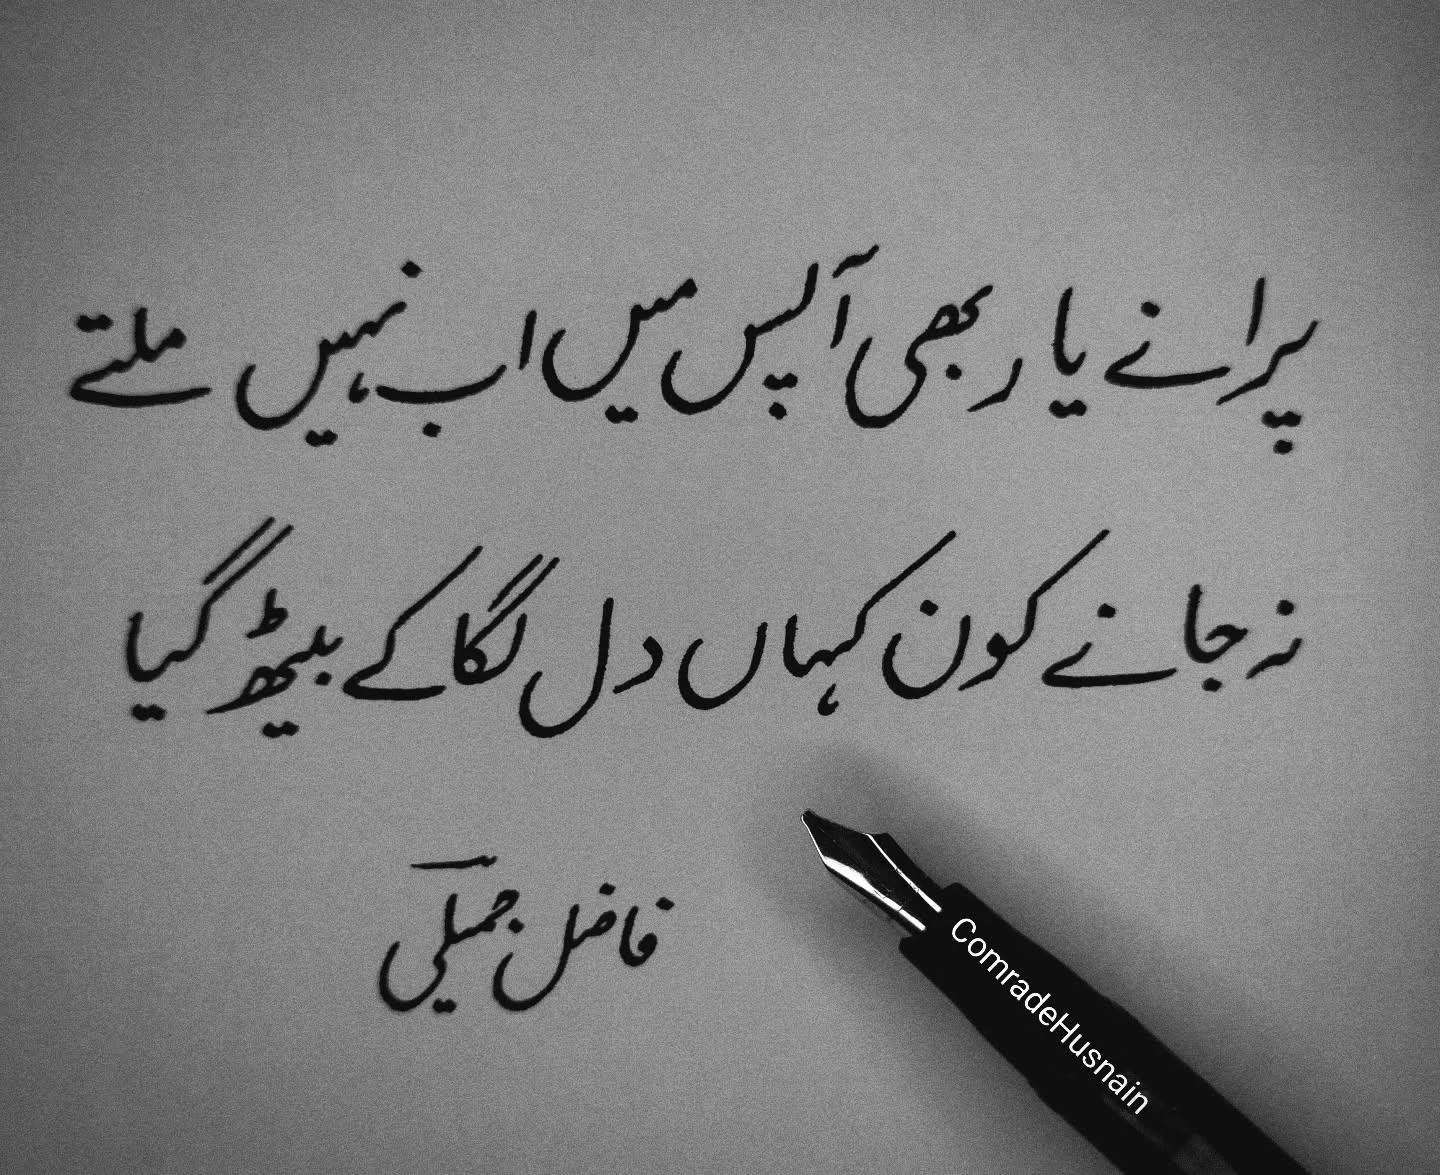 پرانے یار بھی آپس میں اب نہیں ملتے
نہ جانے کون کہاں دل لگا کے بیٹھ گیا
فاضل جمیلی
ComradeHusnain